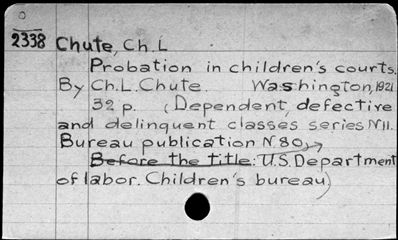 2338 Chute, Ch. L
Probation in children's courts.
By Ch. L. Chute. Washington, 1921
32 p. (Dependent, defective
and delinquent classes series N 11.
Bureau publication N. 80)
Before the title: U.S. Department
of labor. Children's bureau)